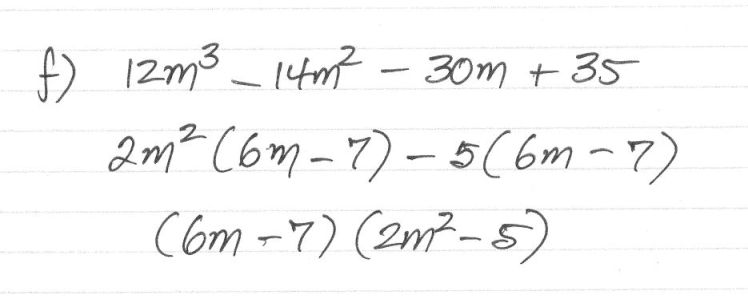 f) 12m³ - 14m² - 30m + 35
2m² (6m - 7) - 5(6m - 7)
(6m - 7) (2m² - 5)